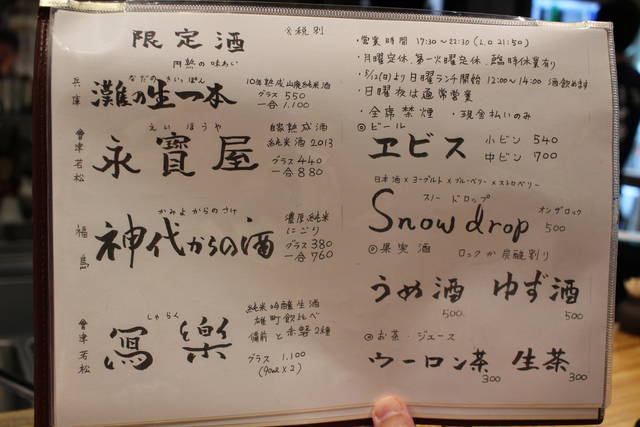 限定酒
※税別
円熟の味わい
兵庫
なだの きいっぽん
灘の生一本
10年熟成山廃純米酒
グラス 550
一合 1.100
會津若松
えいほうや
永寳屋
自家熟成酒
純米酒 2013
グラス 440
一合 880
福島
かみよからのさけ
神代からの酒
濃厚純米
にごり
グラス 380
一合 760
會津若松
しゃらく
寫楽
純米吟醸生酒
雄町飲比べ
備前と赤磐2種
グラス 1.100
(90ml×2)
・営業時間 17:30~22:30 (L.O 21:50)
・月曜定休、第一火曜定休、臨時休業有り
・3/12(日)より日曜ランチ開始 12:00~14:00 酒飲めます
・日曜夜は通常営業
・全席禁煙 ・現金払いのみ
◎ビール
ヱビス
小ビン 540
中ビン 700
日本酒×ヨーグルト×ブルーベリー×ストロベリー
スノー ドロップ
Snow drop
オンザロック
500
◎果実酒 ロックか炭酸割り
うめ酒 ゆず酒
500. 500
◎お茶・ジュース
ウーロン茶 生茶
300 300